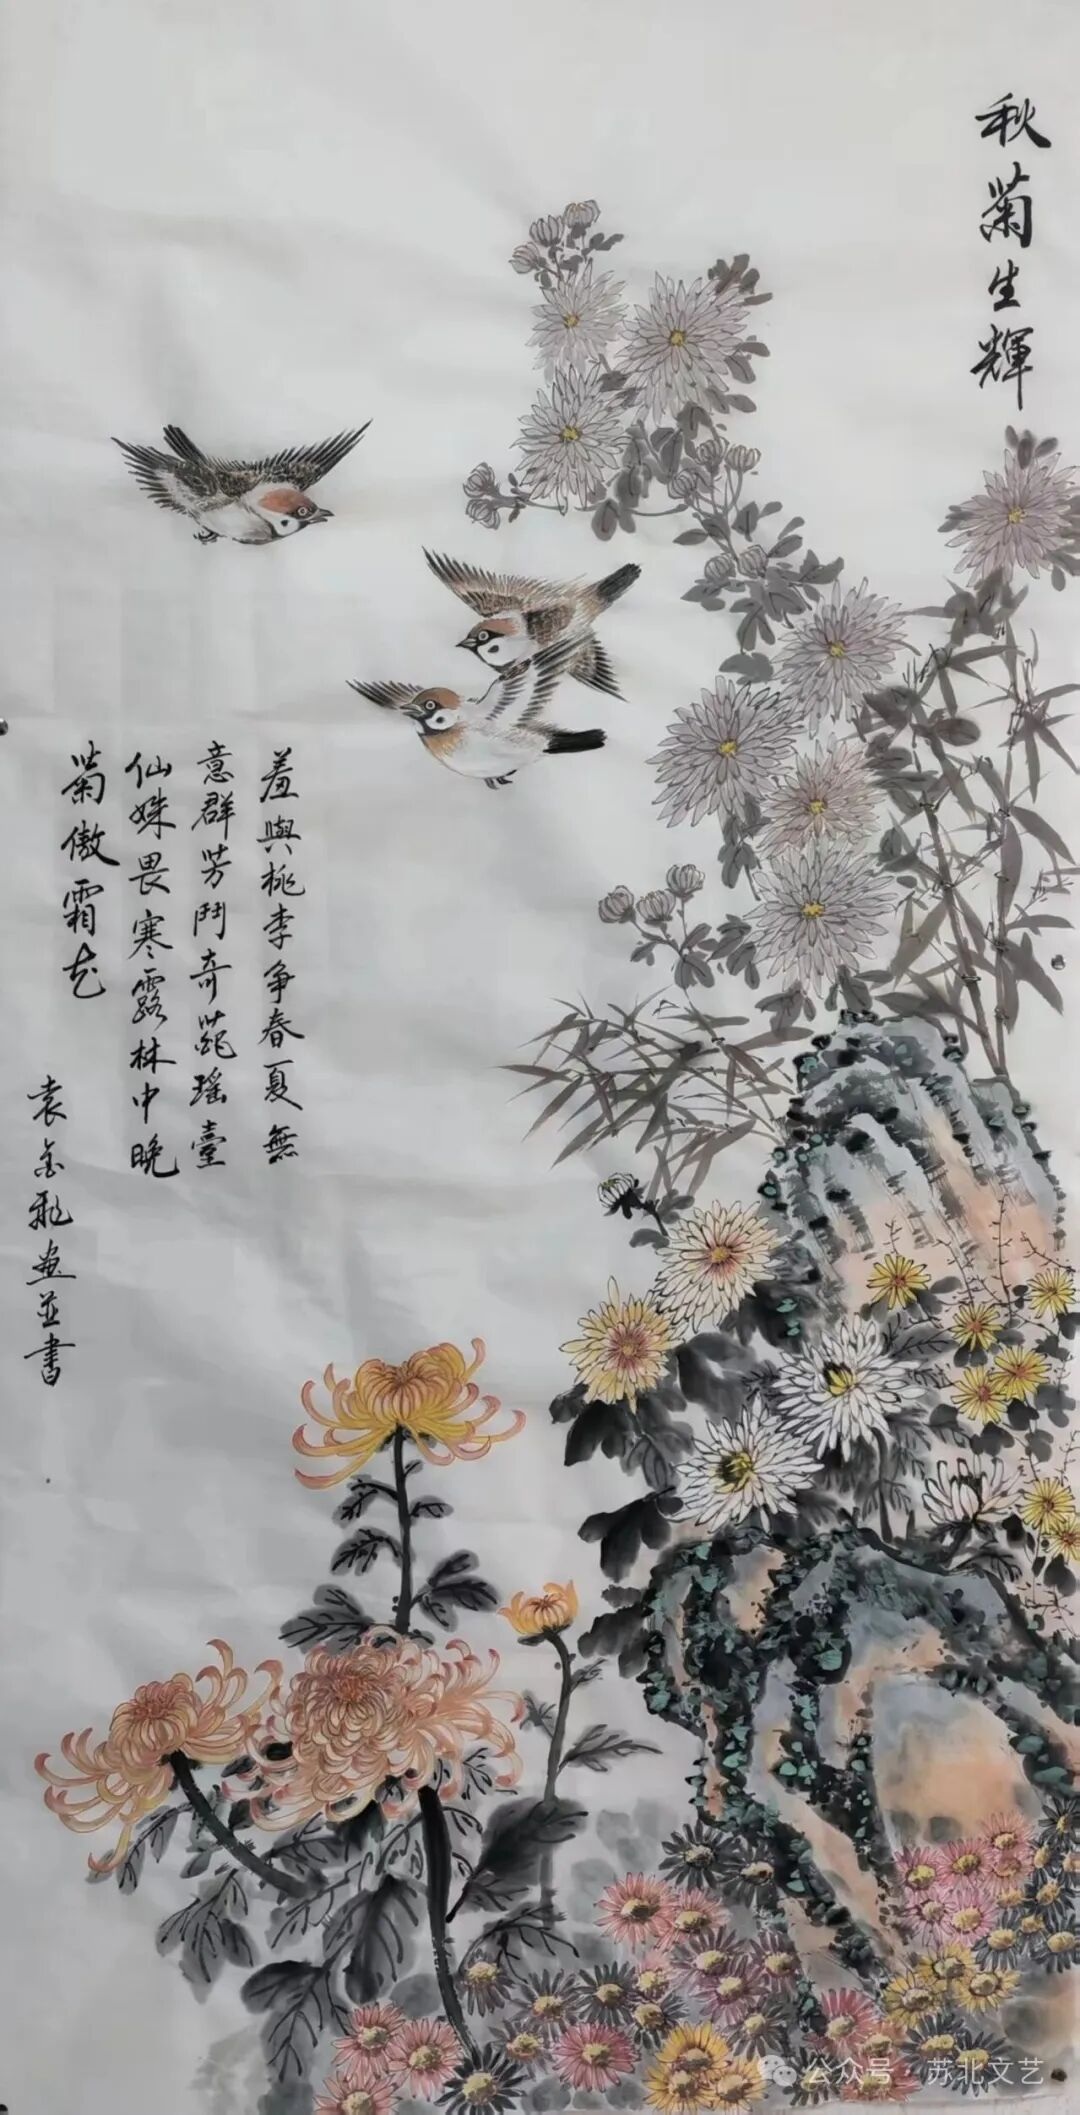 秋菊生輝
羞與桃李争春夏無
意群芳鬥奇葩瑶臺
仙姝畏寒露林中晚
菊傲霜花
袁金飛画並書
公众号·苏北文艺